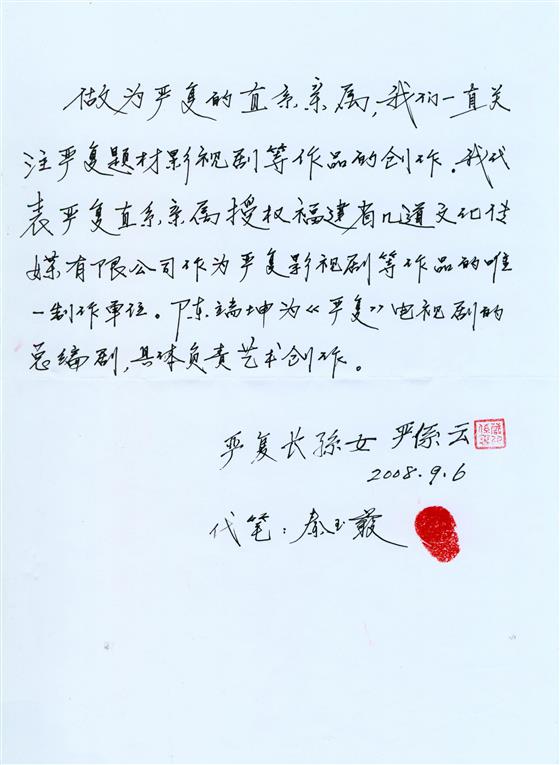 做为严复的直系亲属，我们一直关
注严复题材影视剧等作品的创作。我代
表严复直系亲属授权福建省几道文化传
媒有限公司作为严复影视剧等作品的唯
一制作单位。陈端坤为《严复》电视剧的
总编剧，具体负责艺术创作。
严复长孙女 严係云
2008.9.6
代笔：秦玉